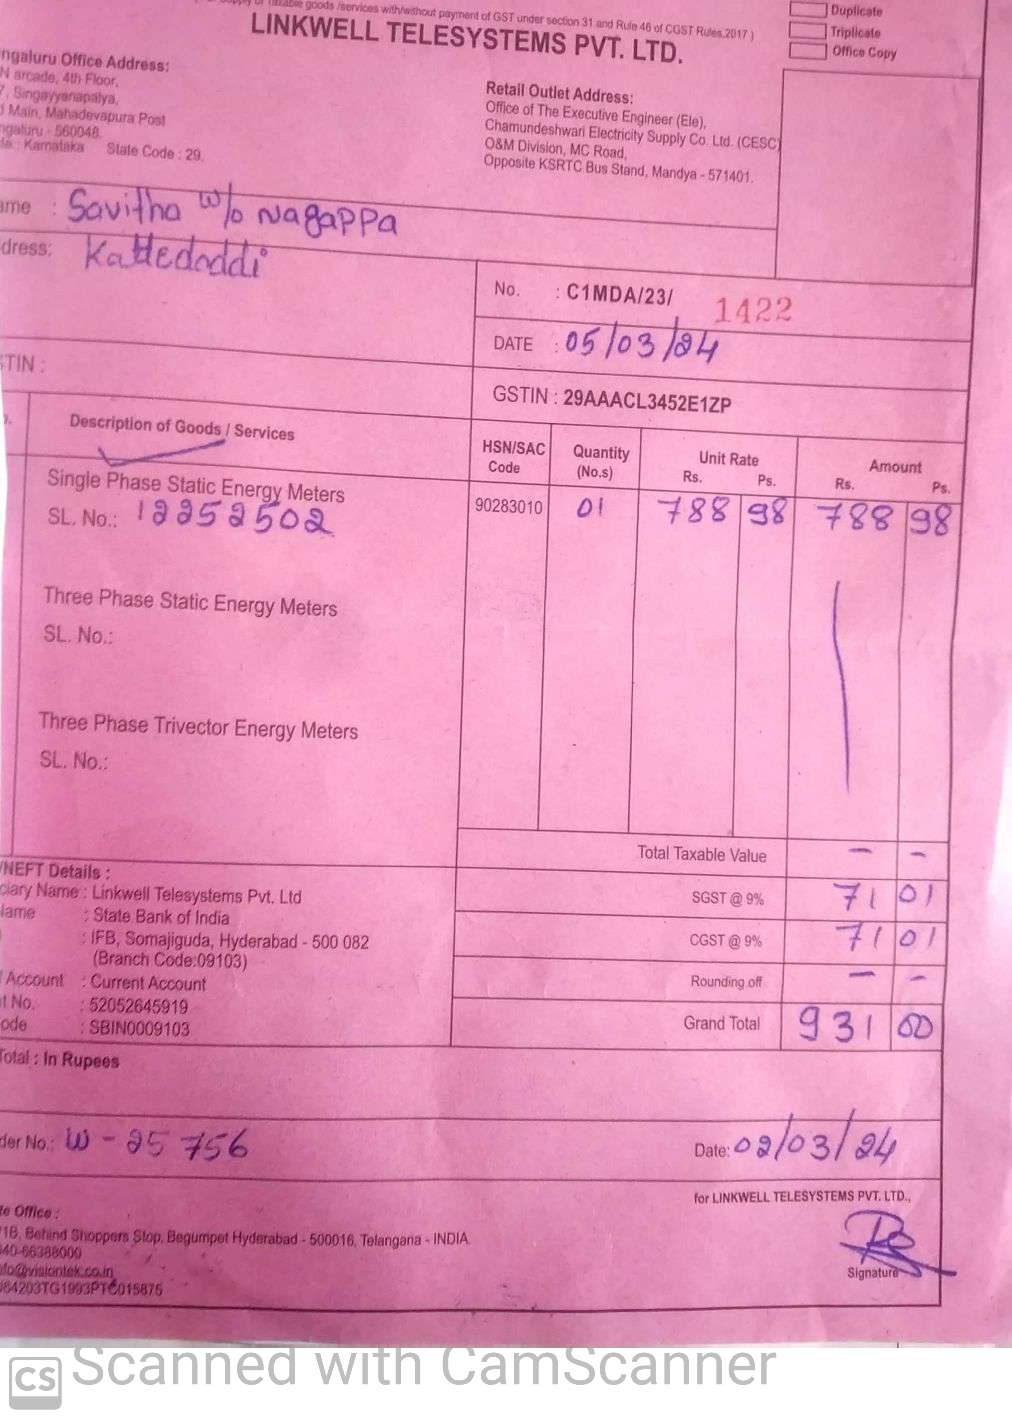 goods /services with/without payment of GST under section 31 and Rule 46 of CGST Rules,2017 )
LINKWELL TELESYSTEMS PVT. LTD.
Duplicate
Triplicate
Office Copy
ngaluru Office Address:
N arcade, 4th Floor,
7, Singayyanapalya,
Main, Mahadevapura Post
ngaluru - 560048.
: Karnataka State Code : 29.
Retail Outlet Address:
Office of The Executive Engineer (Ele),
Chamundeshwari Electricity Supply Co. Ltd. (CESC
O&M Division, MC Road,
Opposite KSRTC Bus Stand, Mandya - 571401.
ame : Savitha w/o Nagappa
dress: Kattedoddi
No. : C1MDA/23/ 1422
DATE : 05/03/24
STIN :
GSTIN : 29AAACL3452E1ZP
Description of Goods / Services
HSN/SAC Code
Quantity (No.s)
Unit Rate Rs. Ps.
Amount Rs. Ps.
Single Phase Static Energy Meters
SL. No.: 12252502 90283010 01 788 98 788 98
Three Phase Static Energy Meters
SL. No.:
Three Phase Trivector Energy Meters
SL. No.:
Total Taxable Value - -
/NEFT Details :
ciary Name : Linkwell Telesystems Pvt. Ltd
SGST @ 9% 71 01
Name : State Bank of India
: IFB, Somajiguda, Hyderabad - 500 082
CGST @ 9% 71 01
(Branch Code:09103)
Account : Current Account
Rounding off - -
t No. : 52052645919
ode : SBIN0009103
Grand Total 931 00
Total : In Rupees
der No.: W - 25756
Date: 02/03/24
for LINKWELL TELESYSTEMS PVT. LTD.,
te Office :
1B, Behind Shoppers Stop, Begumpet Hyderabad - 500016, Telangana - INDIA
040-66388000
nfo@visiontek.co.in
64203TG1993PTC015875
Signature
CS Scanned with CamScanner